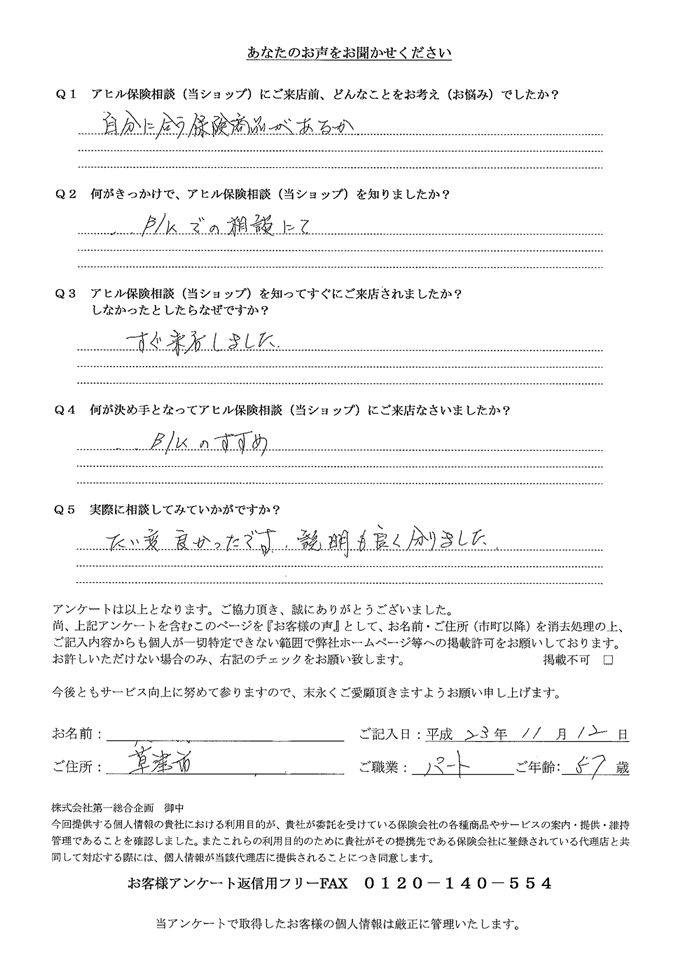 あなたのお声をお聞かせください
Q1 アヒル保険相談（当ショップ）にご来店前、どんなことをお考え（お悩み）でしたか？
自分に合う保険商品があるか
Q2 何がきっかけで、アヒル保険相談（当ショップ）を知りましたか？
B/Kでの相談にて
Q3 アヒル保険相談（当ショップ）を知ってすぐにご来店されましたか？
しなかったとしたらなぜですか？
すぐ来店しました.
Q4 何が決め手となってアヒル保険相談（当ショップ）にご来店なさいましたか？
B/Kのすすめ
Q5 実際に相談してみていかがですか？
たい変良かったです.説明も良く分りました.
アンケートは以上となります。ご協力頂き、誠にありがとうございました。
尚、上記アンケートを含むこのページを『お客様の声』として、お名前・ご住所（市町以降）を消去処理の上、
ご記入内容からも個人が一切特定できない範囲で弊社ホームページ等への掲載許可をお願いしております。
お許しいただけない場合のみ、右記のチェックをお願い致します。 掲載不可 □
今後ともサービス向上に努めて参りますので、末永くご愛顧頂きますようお願い申し上げます。
お名前： ご記入日：平成 23年 11月 12日
ご住所： 草津市 ご職業： パート ご年齢： 57歳
株式会社第一総合企画 御中
今回提供する個人情報の貴社における利用目的が、貴社が委託を受けている保険会社の各種商品やサービスの案内・提供・維持
管理であることを確認しました。またこれらの利用目的のために貴社がその提携先である保険会社に登録されている代理店と共
同して対応する際には、個人情報が当該代理店に提供されることにつき同意します。
お客様アンケート返信用フリーFAX 0120－140－554
当アンケートで取得したお客様の個人情報は厳正に管理いたします。